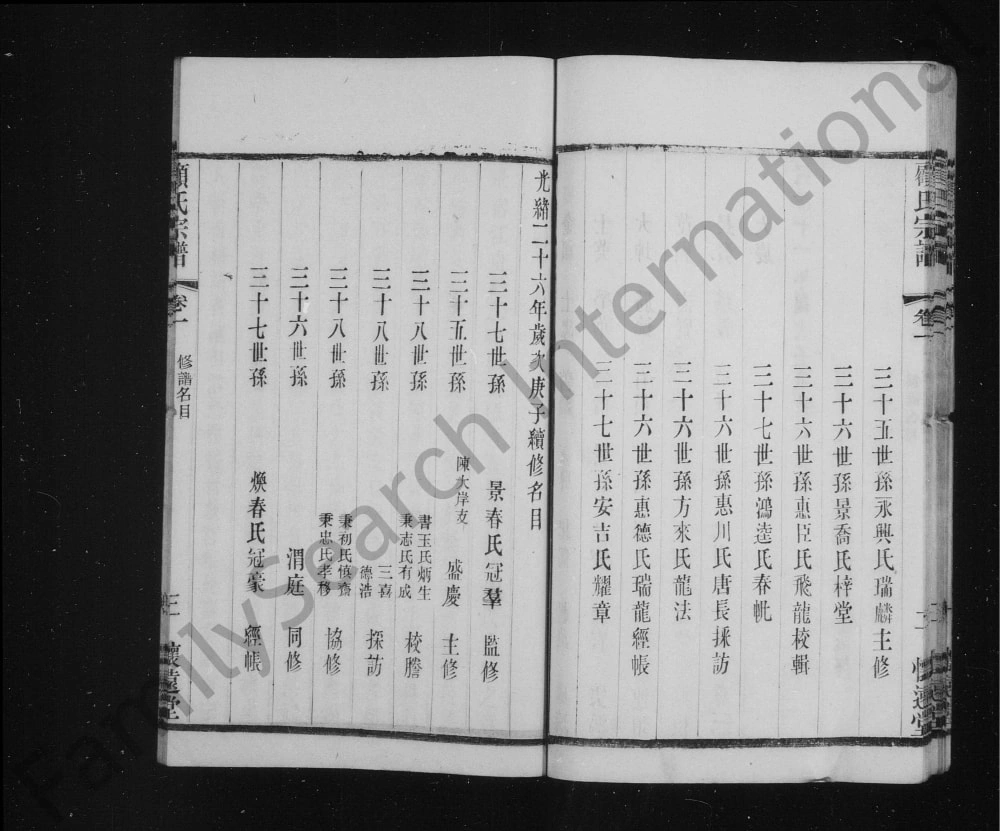 顧氏宗譜
卷一
二
懷遠堂
三十五世孫永興氏瑞麟主修
三十六世孫景喬氏梓堂
三十六世孫惠臣氏飛龍校輯
三十七世孫鴻逵氏春帆
三十六世孫惠川氏唐長採訪
三十六世孫方來氏龍法
三十六世孫惠德氏瑞龍經帳
三十七世孫安吉氏耀章
光緒二十六年歲次庚子續修名目
三十七世孫 景春氏冠羣 監修
三十五世孫 陳大岸支 盛慶 主修
三十八世孫 書玉氏炳生 秉志氏有成 校謄
三十八世孫 三喜 德浩 採訪
三十八世孫 秉初氏慎齋 秉忠氏孝移 協修
三十六世孫 渭庭 同修
三十七世孫 煥春氏冠豪 經帳
顧氏宗譜
卷一
修譜名目
三
懷遠堂
FamilySearch International